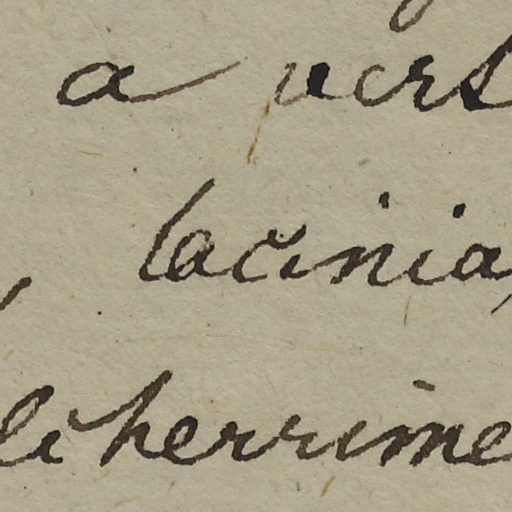 a vers
lacinia,
lcherrime